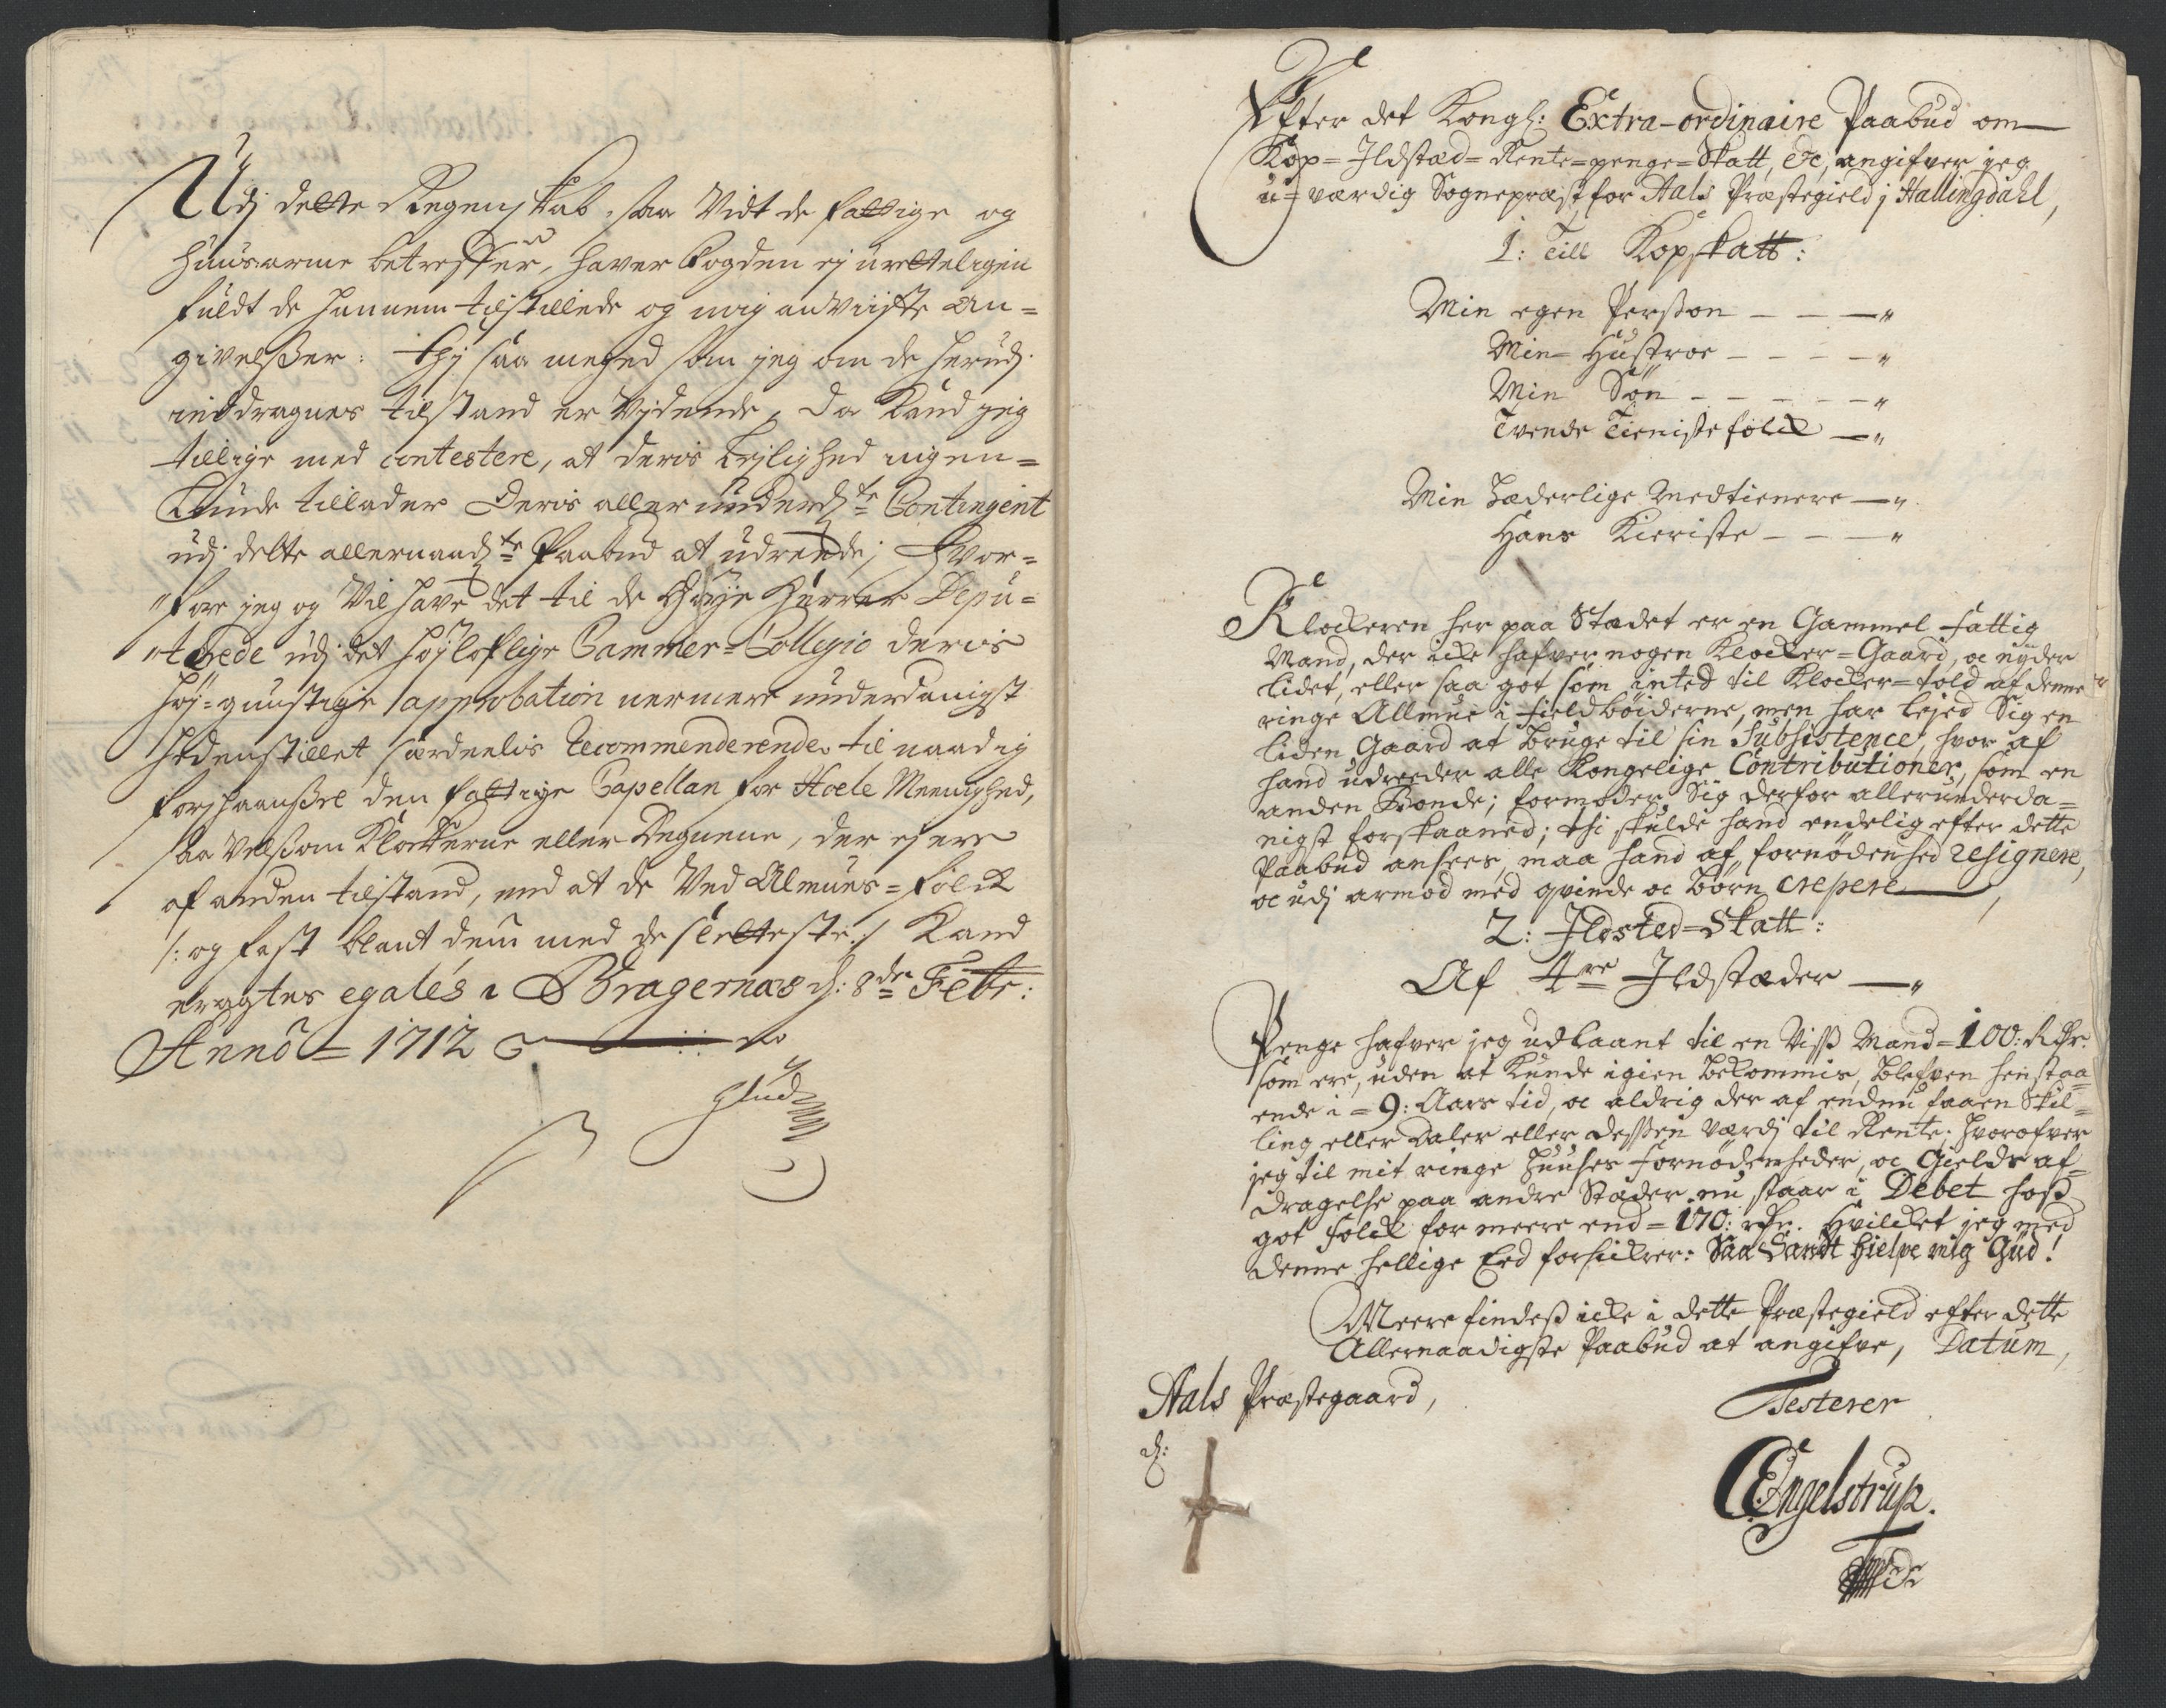 Udj dette Regenskab, saa Vidt de fattige og
huusarme betreffer, haver Fogden ej uretteligen
fuldt de hannem tilstillede og mig anviiste An=
givelsser: thj saa meged som jeg om de herudj
inddragnes tilstand er Vidende, da Kand jeg
tillige med contestere, at deris Lejlighed ingen=
lunde tillader Deris allerunderd:ste Contingent
udj dette allernaad:ste Paabud at udrede; hvor=
"fore jeg og Vil have det til de Høje Herrer Depu=
"terede udj det højloflige Cammer=Collegio deris
høj=gunstige approbation nermere underdanigst
hedenstillet særdeelis Recommenderende til naadig
forskaanssel den fattige Capellan for Hoele Meenighed,
saa velsom Klokkerne eller Degnene, der ej ere
af anden tilstand, end at de Ved Almues=folck
/: og fast blant dem med de sletteste :/ Kand
eragtes egales. Bragernæs d: 8de Febr:
Anno = 1712
Glud
Efter det Kongl: Extra-ordinaire Paabud om
Kop= Ildstæd= Rente=penge=Skatt, etc, angifver jeg
u=værdig Sognepræst for Aals Præstegield j Hallingdahl,
1: Till Kopskatt:
Min egen Persson — — — "
Min Hustroe — — — — "
Min Søn — — — — — "
Tvende Tienistefolck — "
Min Hæderlige Medtienere — "
Hans Kieriste — — — "
Klockeren her paa Stædet er en Gammel fattig
Mand, der icke hafver nogen Klocker=Gaard, oc nyder
lidet, eller saa got som inted til Klocker=told af denne
ringe Allmue i fieldbøiderne, men har lejed Sig en
liden Gaard at bruge til sin Subsistence, hvor af
hand udreeder alle Kongelige Contributioner, som en
anden Bonde; formoder Sig derfor allerunderda=
nigst forskaaned; thi skulde hand endelig efter dette
Paabud ansees, maa hand af fornødenhed resignere,
oc udj armod med qvinde oc Børn crepere
2: Ildsted=Skatt:
Af 4re Ildstæder — "
Penge hafver jeg udlaant til en Viss Mand = 100: Rdr.
som ere, uden at Kunde igien bekommis, blefven henstaa=
ende i = 9: Aars tid, oc aldrig der af endnu faaen Skil=
ling eller Daler eller dessen værdj til Rente; hvorofver
jeg til mit ringe Huuses fornødenheder, oc Gields af=
dragelse paa andre Stæder nu staar i Debet hoss
got folck for meere end = 170: rdr. Hvilcket jeg med
denne hellige Eed forsickrer: Saa Sandt hielpe mig Gud!
Meere findess icke i dette Præstegield efter dette
Allernaadigste Paabud at angifve, Datum,
Aals Præstegaard,
Testerer
d:
Engelstrup.